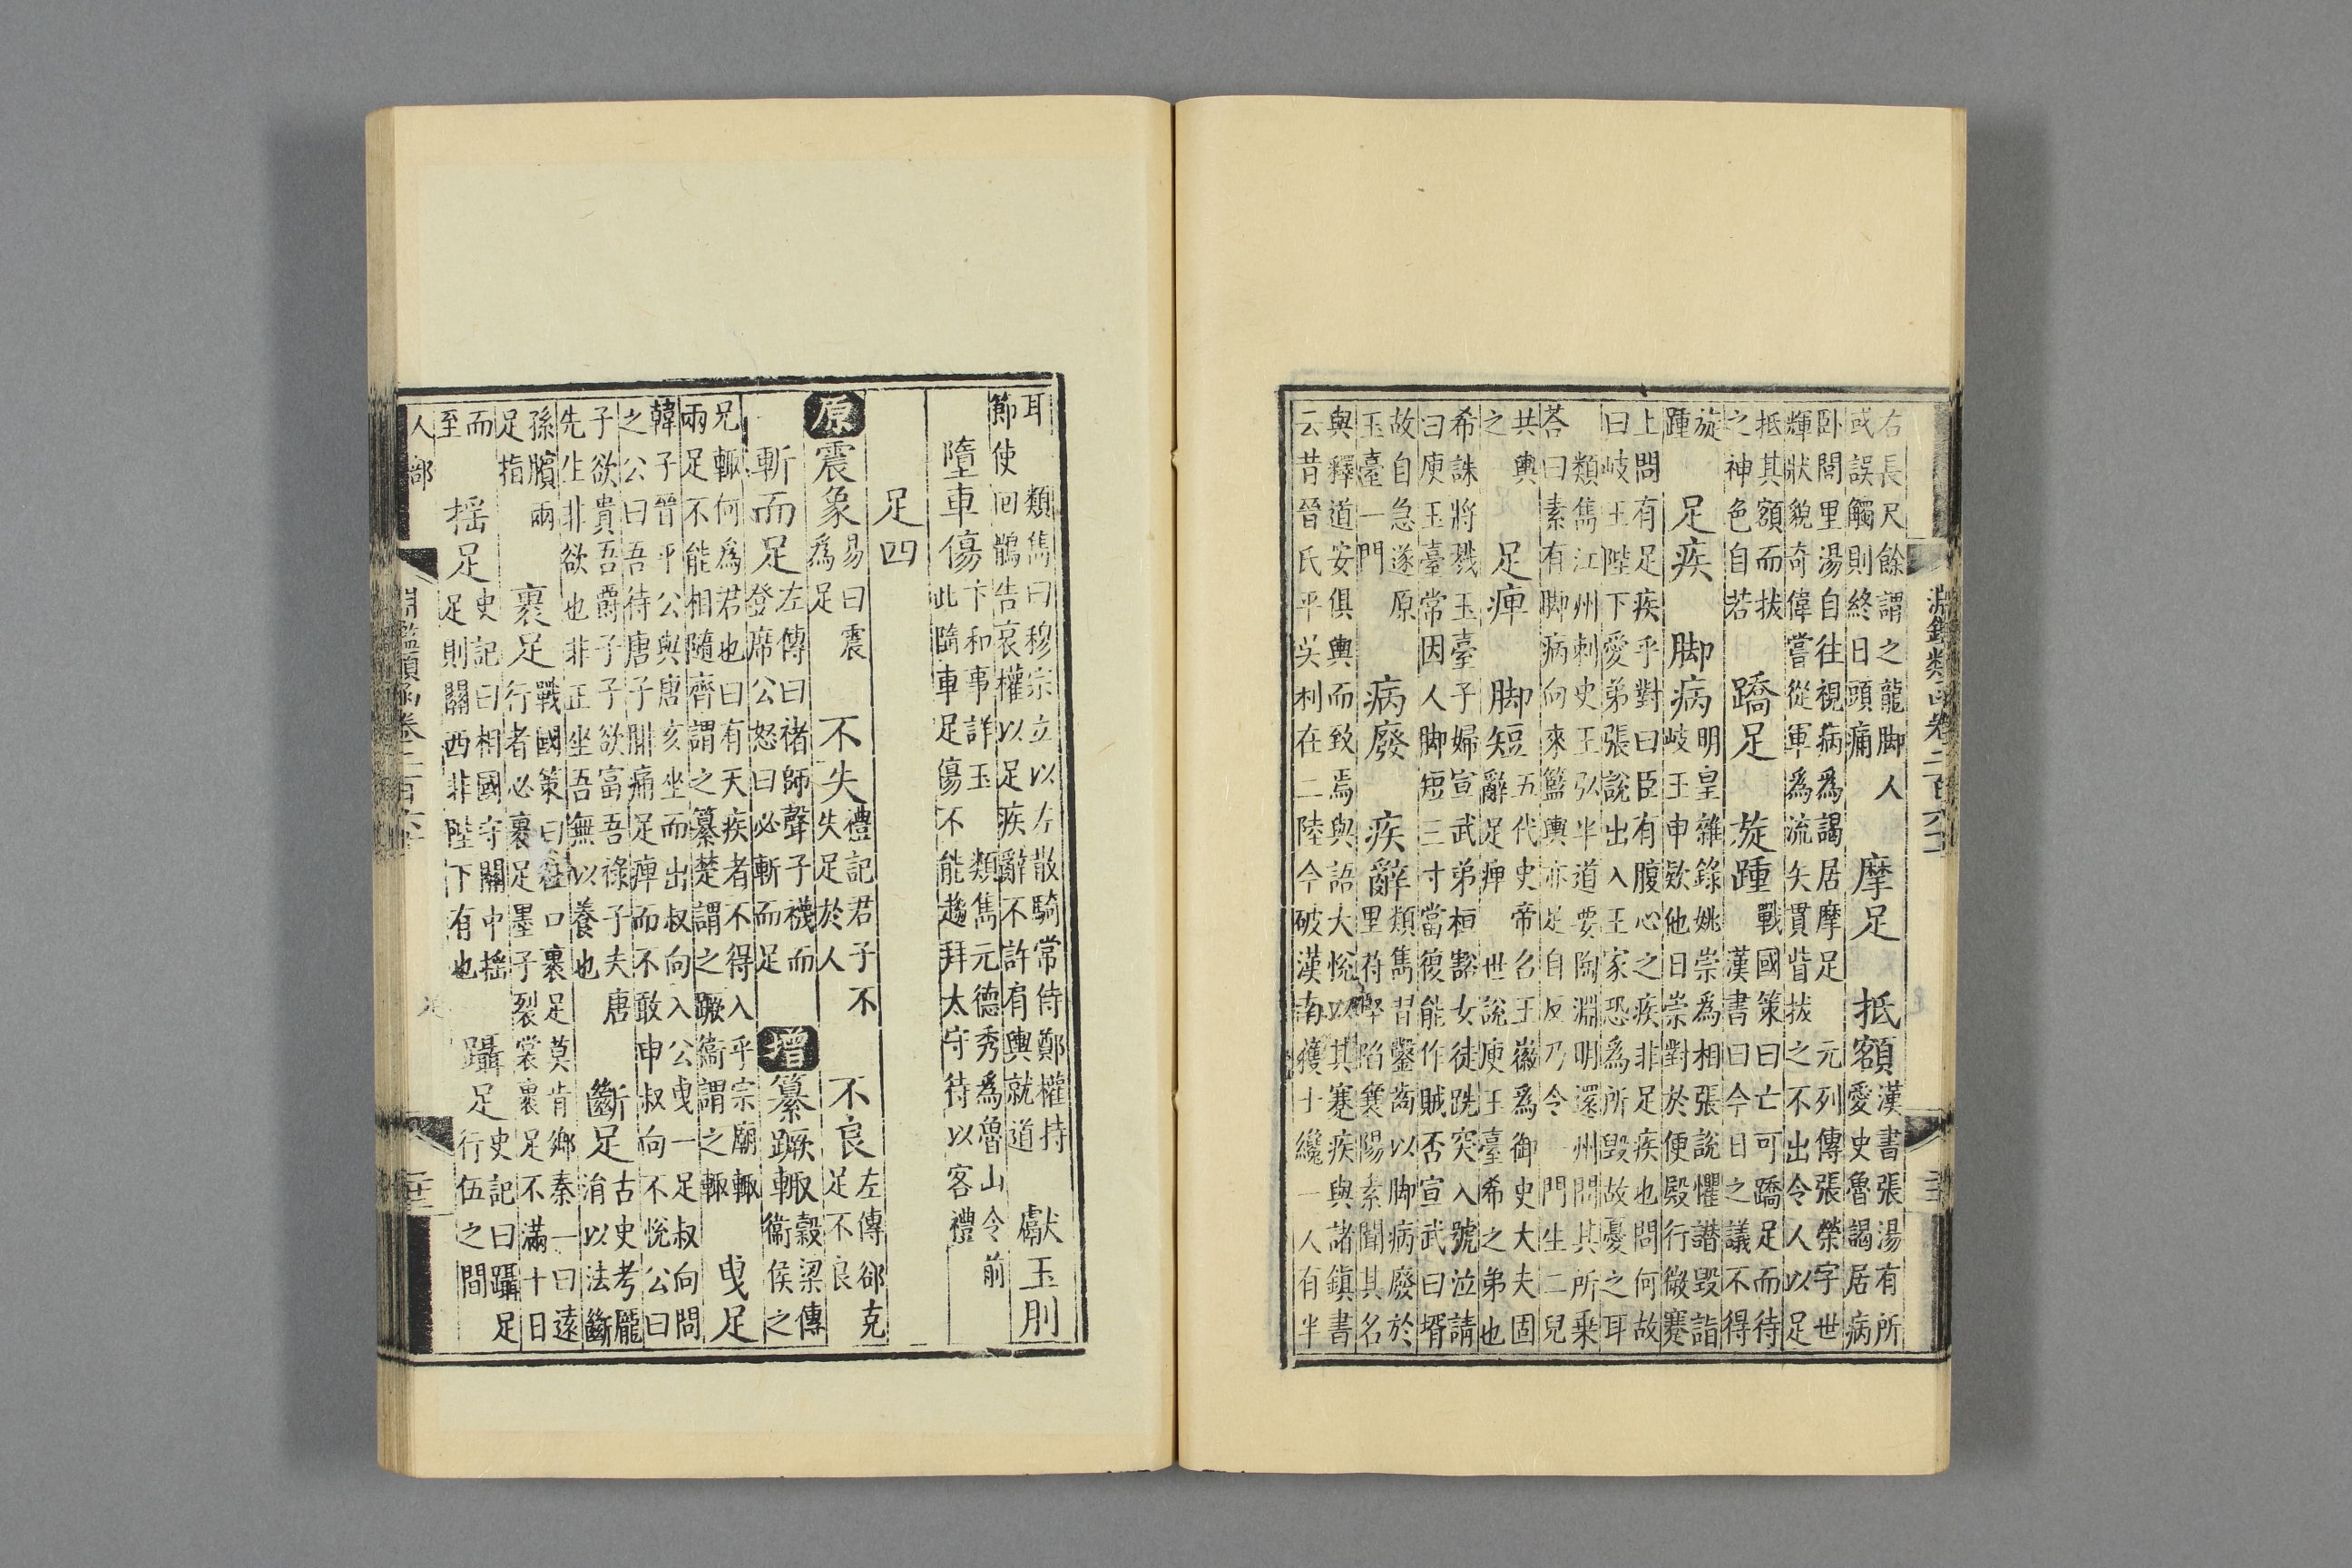 淵鑑類函卷二百六十
右長尺餘謂之龍脚人
或誤觸則終日頭痛
摩足 抵額
漢書張湯有所
愛史魯謁居病
卧閭里湯自往視病爲謁居摩足 元列傳張榮字世
輝狀貌奇偉嘗從軍爲流矢貫眥拔之不出令人以足
抵其額而拔
之神色自若
蹻足 旋踵
戰國策曰亡可蹻足而待
漢書曰今日之議不得
旋
踵
足疾 脚病
明皇雜錄姚崇爲相張說懼譖毀詣
岐王申欵他日崇對於便殿行微蹇
上問有足疾乎對曰臣有腹心之疾非足疾也問何故
曰岐王陛下愛弟張說出入王家恐爲所毁故憂之耳
類雋江州刺史王弘半道要陶淵明還州問其所乗
荅曰素有脚病向來籃輿亦足自反乃令一門生二兒
共輿
之
足痺 脚短
五代史帝召王徽爲御史大夫固
辭足痺 世說庾玉臺希之弟也
希誅將戮玉臺子婦宣武弟桓豁女徒跣突入號泣請
曰庾玉臺常因人脚短三寸當復能作賊否宣武曰壻
故自急遂原
玉臺一門
病廢 疾辭
類雋昔鑿齒以脚病廢於
里苻堅陷襄陽素聞其名
與釋道安俱輿而致焉與語大悅以其蹇疾與諸鎮書
云昔晉氏平吳利在二陸今破漢南獲十纔一人有半
耳 類雋曰穆宗立以左散騎常侍鄭權持
節使回鶻告哀權以足疾辭不許肩輿就道
獻玉刖
墮車傷
卞和事詳玉 類雋元德秀爲魯山令前
此隋車足傷不能趨拜太守待以客禮
足四
原 震象
易曰震
爲足
不失
禮記君子不
失足於人
不良
左傳郤克
足不良
斬而足
左傳曰褚師聲子襪而
登席公怒曰必斬而足
增 綦蹶輒
榖梁傳
衞侯之
兄輒何爲君也曰有天疾者不得入乎宗廟輒
兩足不能相隨齊謂之綦楚謂之蹶衞謂之輒
曳足
韓子晉平公與唐亥坐而出叔向入公曳一足叔向問
之公曰吾待唐子腓痛足痺而不敢申叔向不悅公曰
子欲貴吾爵子子欲富吾祿子夫唐
先生非欲也非正坐吾無以養也
斷足
古史考龐
涓以法斷
孫臏兩
足指
裹足
戰國策曰杜口裹足莫肯鄉秦一曰遠
行者必裹足墨子裂裳裹足不滿十日
而
至
揺足
史記曰相國守關中揺
足則關西非陛下有也
躡足
史記曰躡足
行伍之間
人部
淵鑑類函卷二百六十